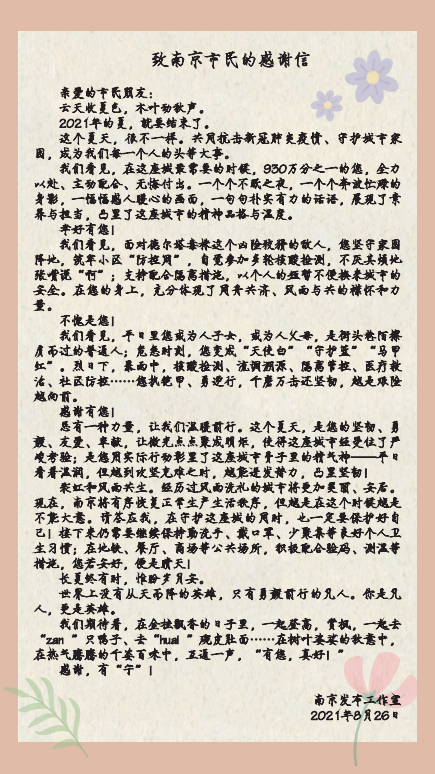 致南京市民的感谢信
亲爱的市民朋友：
云天收夏色，木叶动秋声。
2021年的夏，就要结束了。
这个夏天，很不一样。共同抗击新冠肺炎疫情、守护城市家
园，成为我们每一个人的头等大事。
我们看见，在这座城最需要的时候，930万分之一的您，全力
以赴、主动配合、无悔付出。一个个不眠之夜，一个个奔波忙碌的
身影，一幅幅感人暖心的画面，一句句朴实有力的话语，展现了素
养与担当，凸显了这座城市的精神品格与温度。
幸好有您！
我们看见，面对德尔塔毒株这个凶险狡猾的敌人，您坚守家园
阵地，筑牢小区“防控网”，自觉参加多轮核酸检测，不厌其烦地
张嘴说“啊”；支持配合隔离措施，以个人的短暂不便换来城市的
安全。在您的身上，充分体现了同舟共济、风雨与共的襟怀和力
量。
不愧是您！
我们看见，平日里您或为人子女，或为人父母，是街头巷陌擦
肩而过的普通人；危急时刻，您变成“天使白”“守护蓝”“马甲
红”。烈日下，暴雨中，核酸检测、流调溯源、隔离管控、医疗救
治、社区防控……您执铠甲、勇逆行，千磨万击还坚韧，越是艰险
越向前。
感谢有您！
总有一种力量，让我们温暖前行。这个夏天，是您的坚韧、勇
毅、友爱、奉献，让微光点点聚成明炬，使得这座城市经受住了严
峻考验；是您用实际行动彰显了这座城市骨子里的精气神——平日
看着温润，但越到攻坚克难之时，越能迸发潜力，凸显坚韧！
彩虹和风雨共生。经历过风雨洗礼的城市将更加美丽、安居。
现在，南京将有序恢复正常生产生活秩序，但越是在这个时候越是
不能大意。请答应我，在守护这座城的同时，也一定要保护好自
己！接下来仍需要继续保持勤洗手、戴口罩、少聚集等良好个人卫
生习惯；在地铁、餐厅、商场等公共场所，积极配合验码、测温等
措施，您若安好，便是晴天！
长夏终有时，惟盼岁月安。
世界上没有从天而降的英雄，只有勇毅前行的凡人。你是凡
人，更是英雄。
我们期待着，在金桂飘香的日子里，一起登高，赏枫，一起去
“zan ”只鸭子、去“huai ”碗皮肚面……在树叶婆娑的秋意中，
在热气腾腾的千姿百味中，互道一声，“有您，真好！”
感谢，有“宁”！
南京发布工作室
2021年8月26日